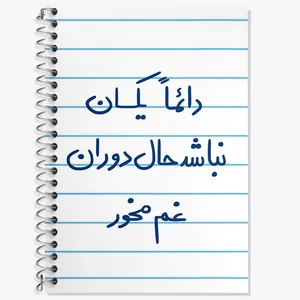 دائماً یکسان
نباشد حال دوران
غم مخور